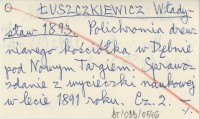 ŁUSZCZKIEWICZ Włady-
sław 1893. Polichromia drew-
nianego kościółka w Dębnie
pod Nowym Targiem. Sprawo-
zdanie z wycieczki naukowej
w lecie 1891 roku. Cz. 2. -